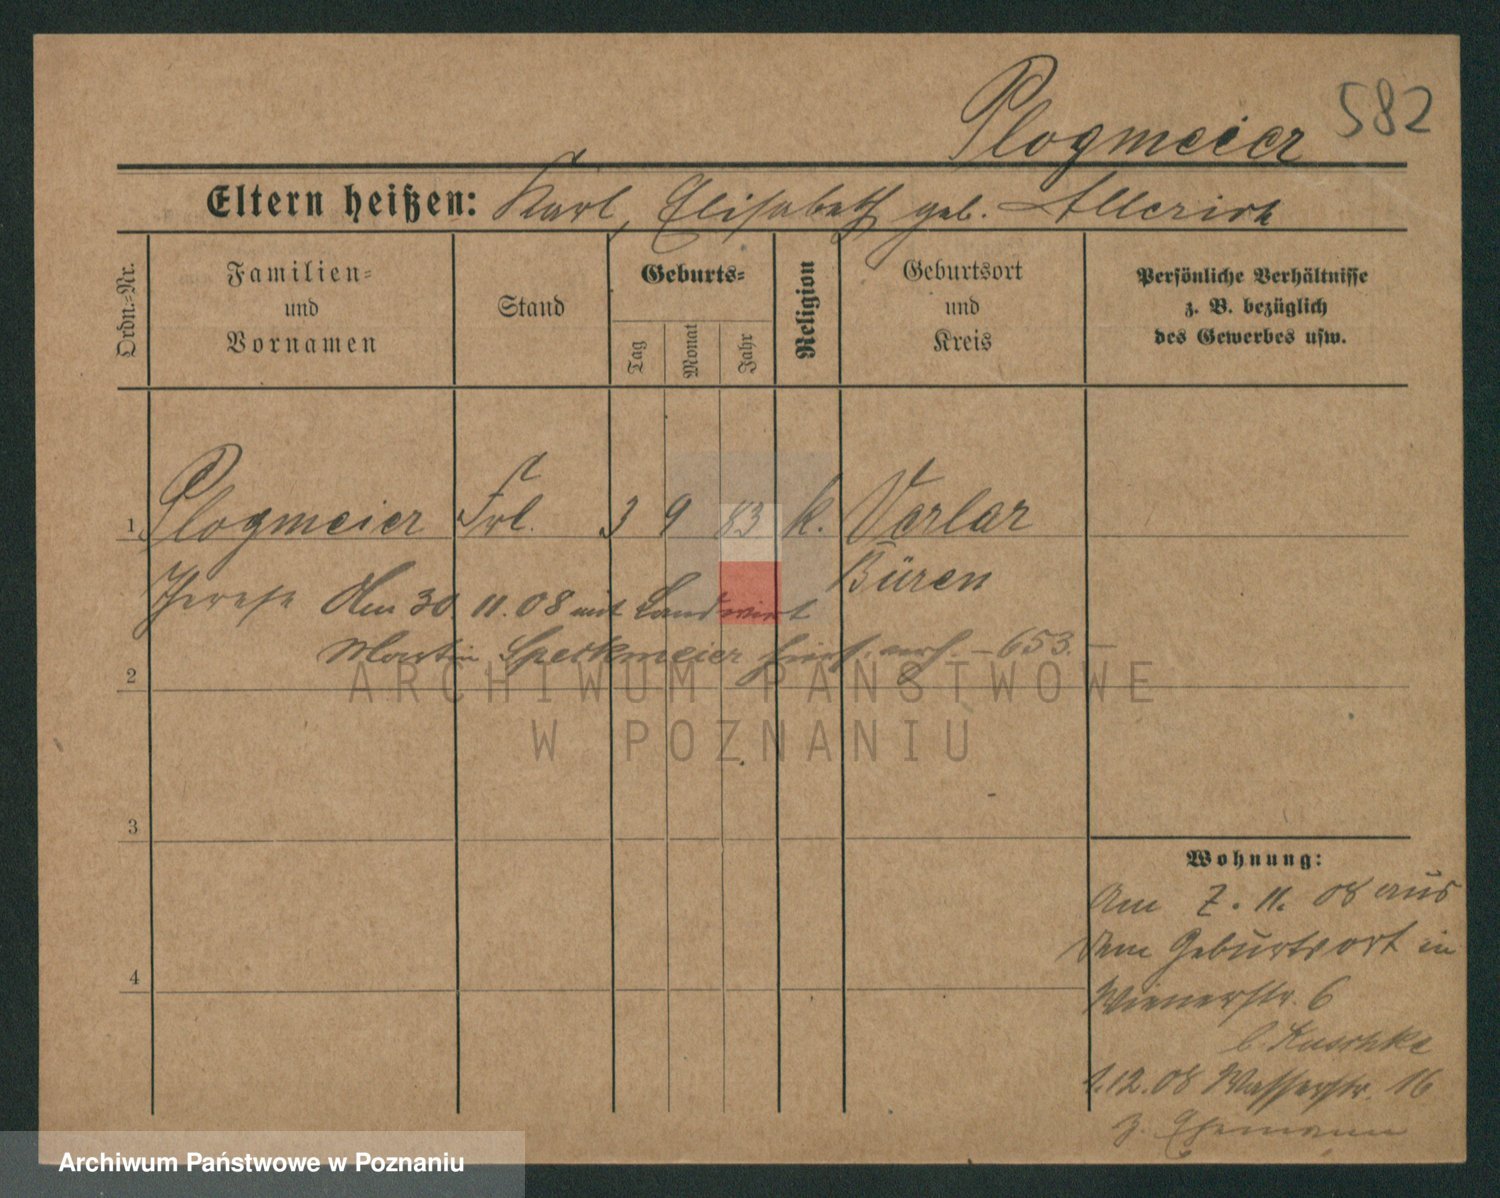 582
Plogmeier
Eltern heißen: Karl, Elisabeth geb. Allerich
Ordn.-Nr.
Familien-
und
Vornamen
Stand
Geburts-
Tag
Monat
Jahr
Religion
Geburtsort
und
Kreis
Persönliche Verhältnisse
z. B. bezüglich
des Gewerbes usw.
1 Plogmeier Frl. 3 9 83 k. Verlar
Büren
Therese Am 30 11. 08 mit Landwirt
Martin Speckmeier hier verh. – 653. –
2
3
4
Wohnung:
Am 7. 11. 08 aus
dem Geburtsort in
Wienerstr. 6
b. Kuschke
1.12.08 Wasserstr. 16
z. Ehemann
ARCHIWUM PAŃSTWOWE
W POZNANIU
Archiwum Państwowe w Poznaniu